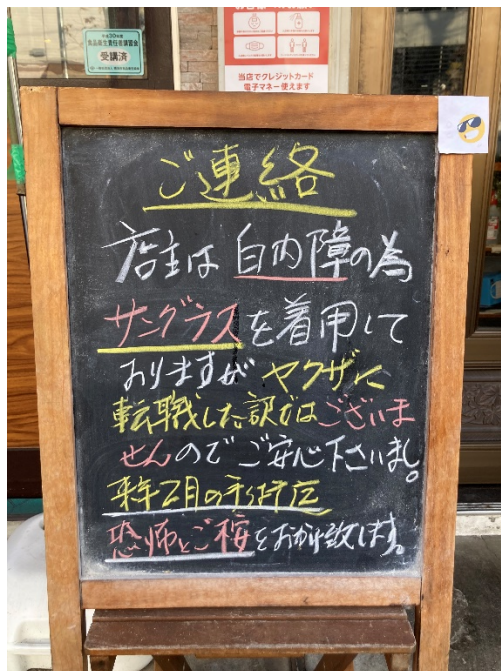 食品衛生責任者講習会
受講済
当店でクレジットカード
電子マネー使えます
ご連絡
店主は白内障の為
サングラスを着用して
おりますが ヤクザに
転職した訳ではございま
せんのでご安心下さいまし。
来年2月の手術迄
恐怖とご をお掛け致します。